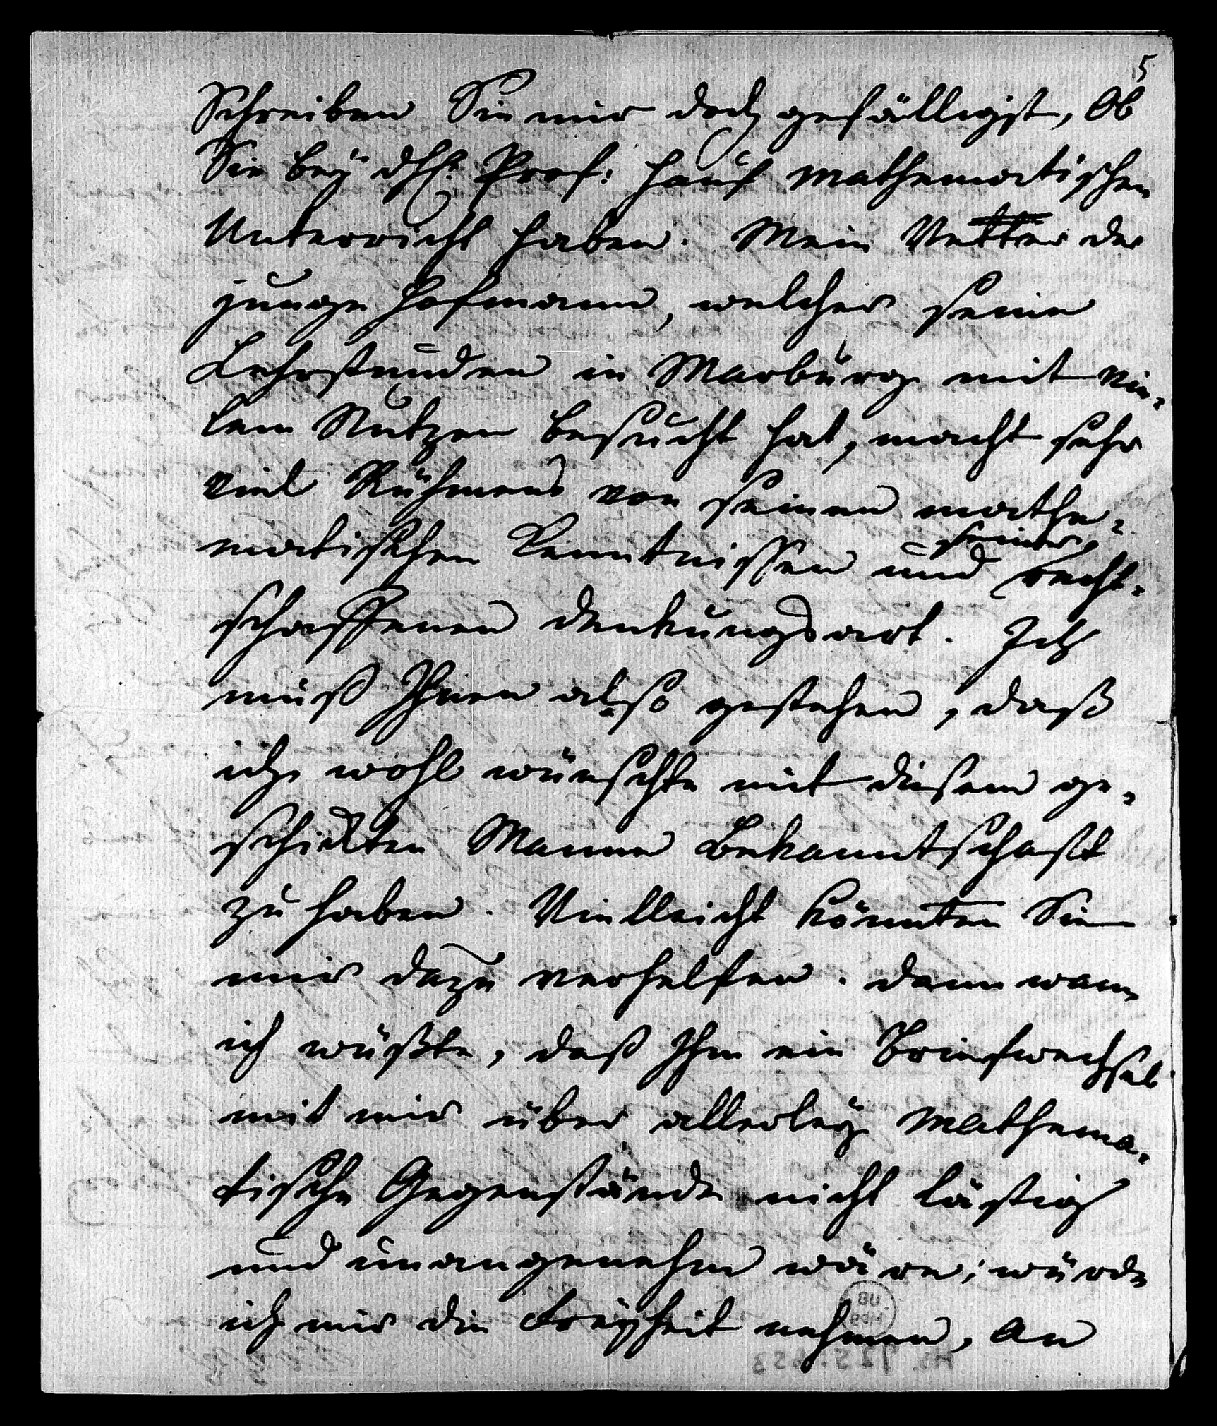 5
Schreiben Sie mir doch gefälligst, Ob
Sie beÿ dH. Prof: Hauf mathematischen
Unterricht haben. Mein Vetter der
junge Hofmann, welcher seine
Lehrstunden in Marburg mit vie-
lem Nutzen besucht hat, macht sehr
viel Rühmens von seinen mathe-
matischen Kenntnissen und seiner recht-
schaffenen Denkungsart. Ich
muß Ihnen also gestehen, daß
ich wohl wünschte mit diesem ge-
schickten Manne Bekanntschaft
zu haben. Vielleicht könnten Sie
mir dazu verhelfen. Dann wann
ich wüßte, daß Ihm ein Briefwechsel
mit mir über allerleÿ Mathema-
tische Gegenstände nicht lästig
und unangenehm wäre; würde
ich mir die Freÿheit nehmen, An